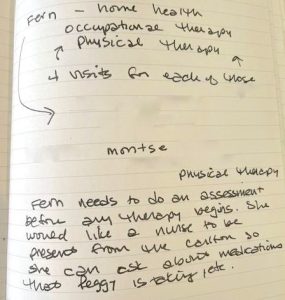 Fern - home health
occupational therapy
Physical therapy
4 visits for each of those
montse
Physical therapy
Fern needs to do an assessment
before any therapy begins. She
would like a nurse to be
present from the carlton so
she can ask about medications
that Peggy is taking, etc.